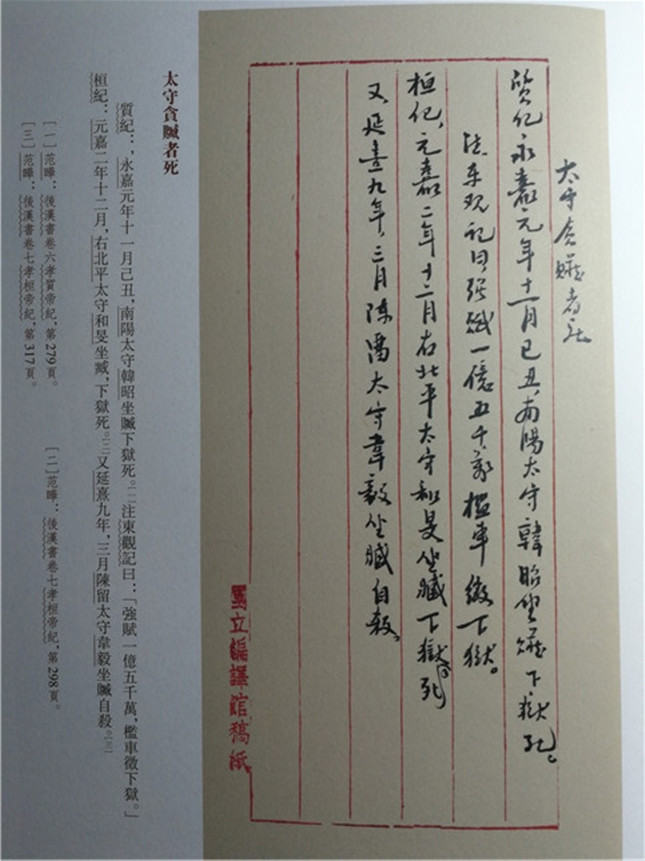 太守貪贓者死
質紀永嘉元年十一月己丑,南陽太守韓昭坐贓下獄死。
注東观記曰,強賦一億五千萬,檻車徵下獄。
桓紀,元嘉二年十二月右北平太守和旻坐臧下獄死
又延熹九年,三月陳留太守韋毅坐臧自殺。
國立編譯館稿紙
太守貪贓者死
質紀:,永嘉元年十一月己丑,南陽太守韓昭坐贓下獄死。〔一〕注東觀記曰:「強賦一億五千萬,檻車徵下獄。」
桓紀:元嘉二年十二月,右北平太守和旻坐臧,下獄死。〔二〕又延熹九年,三月陳留太守韋毅坐贓自殺。〔三〕
〔一〕范曄:後漢書卷六孝質帝紀,第279頁。
〔二〕范曄:後漢書卷七孝桓帝紀,第298頁。
〔三〕范曄:後漢書卷七孝桓帝紀,第317頁。